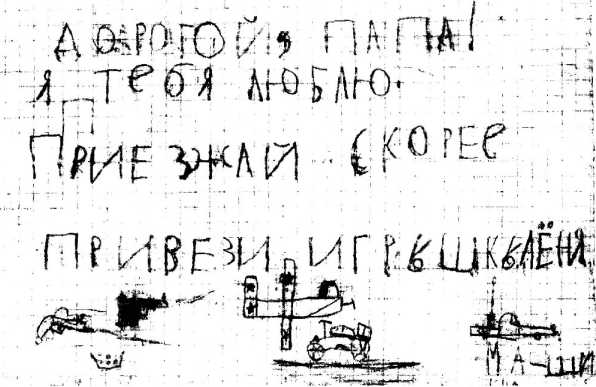 ДОАРОГОЙ, ПАПА!
Я ТЕБЯ ЛЮБЛЮ.
ПРИЕЗЖАЙ СКОРЕЕ
ПРИВЕЗИ ИГРУШКУ ЛЁНЯ
МА-ШИ